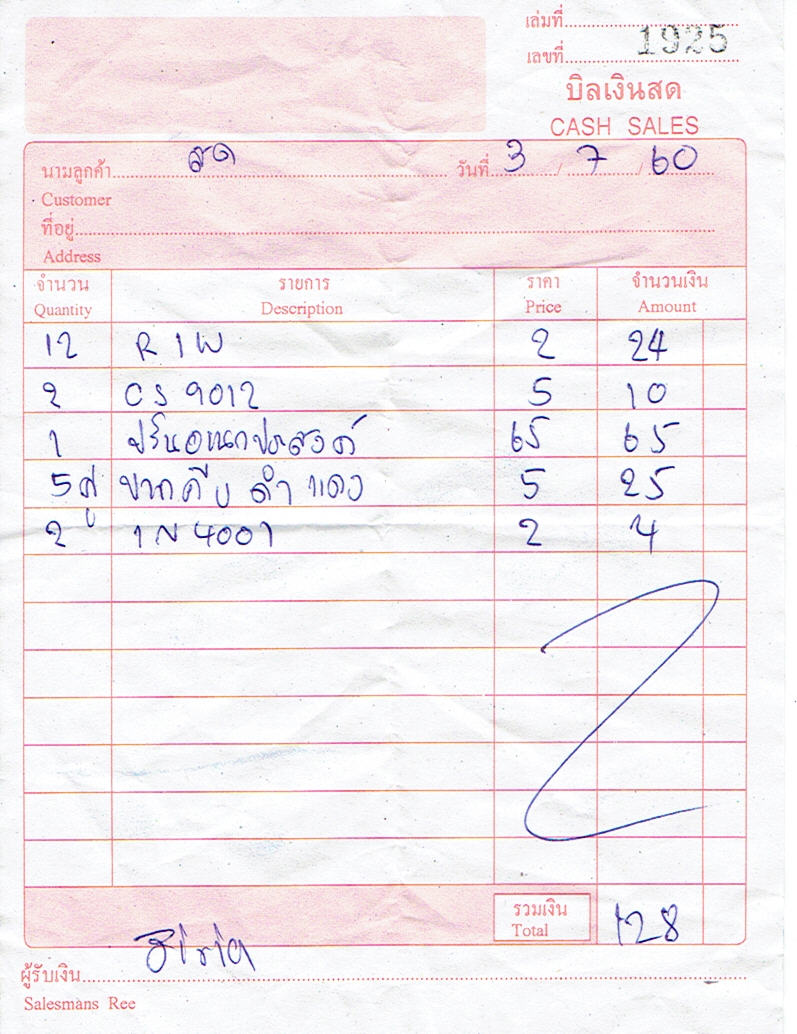 เล่มที่
เลขที่ 1925
บิลเงินสด
CASH SALES
นามลูกค้า สด วันที่ 3 / 7 / 60
Customer
ที่อยู่
Address
จำนวน รายการ ราคา จำนวนเงิน
Quantity Description Price Amount
12 R 1W 2 24
2 CS 9012 5 10
1 ปริ้นอเนกประสงค์ 65 65
5 คู่ ปากคีบ ดำ แดง 5 25
2 1N 4001 2 4
รวมเงิน 128
Total
ผู้รับเงิน
Salesmans Ree